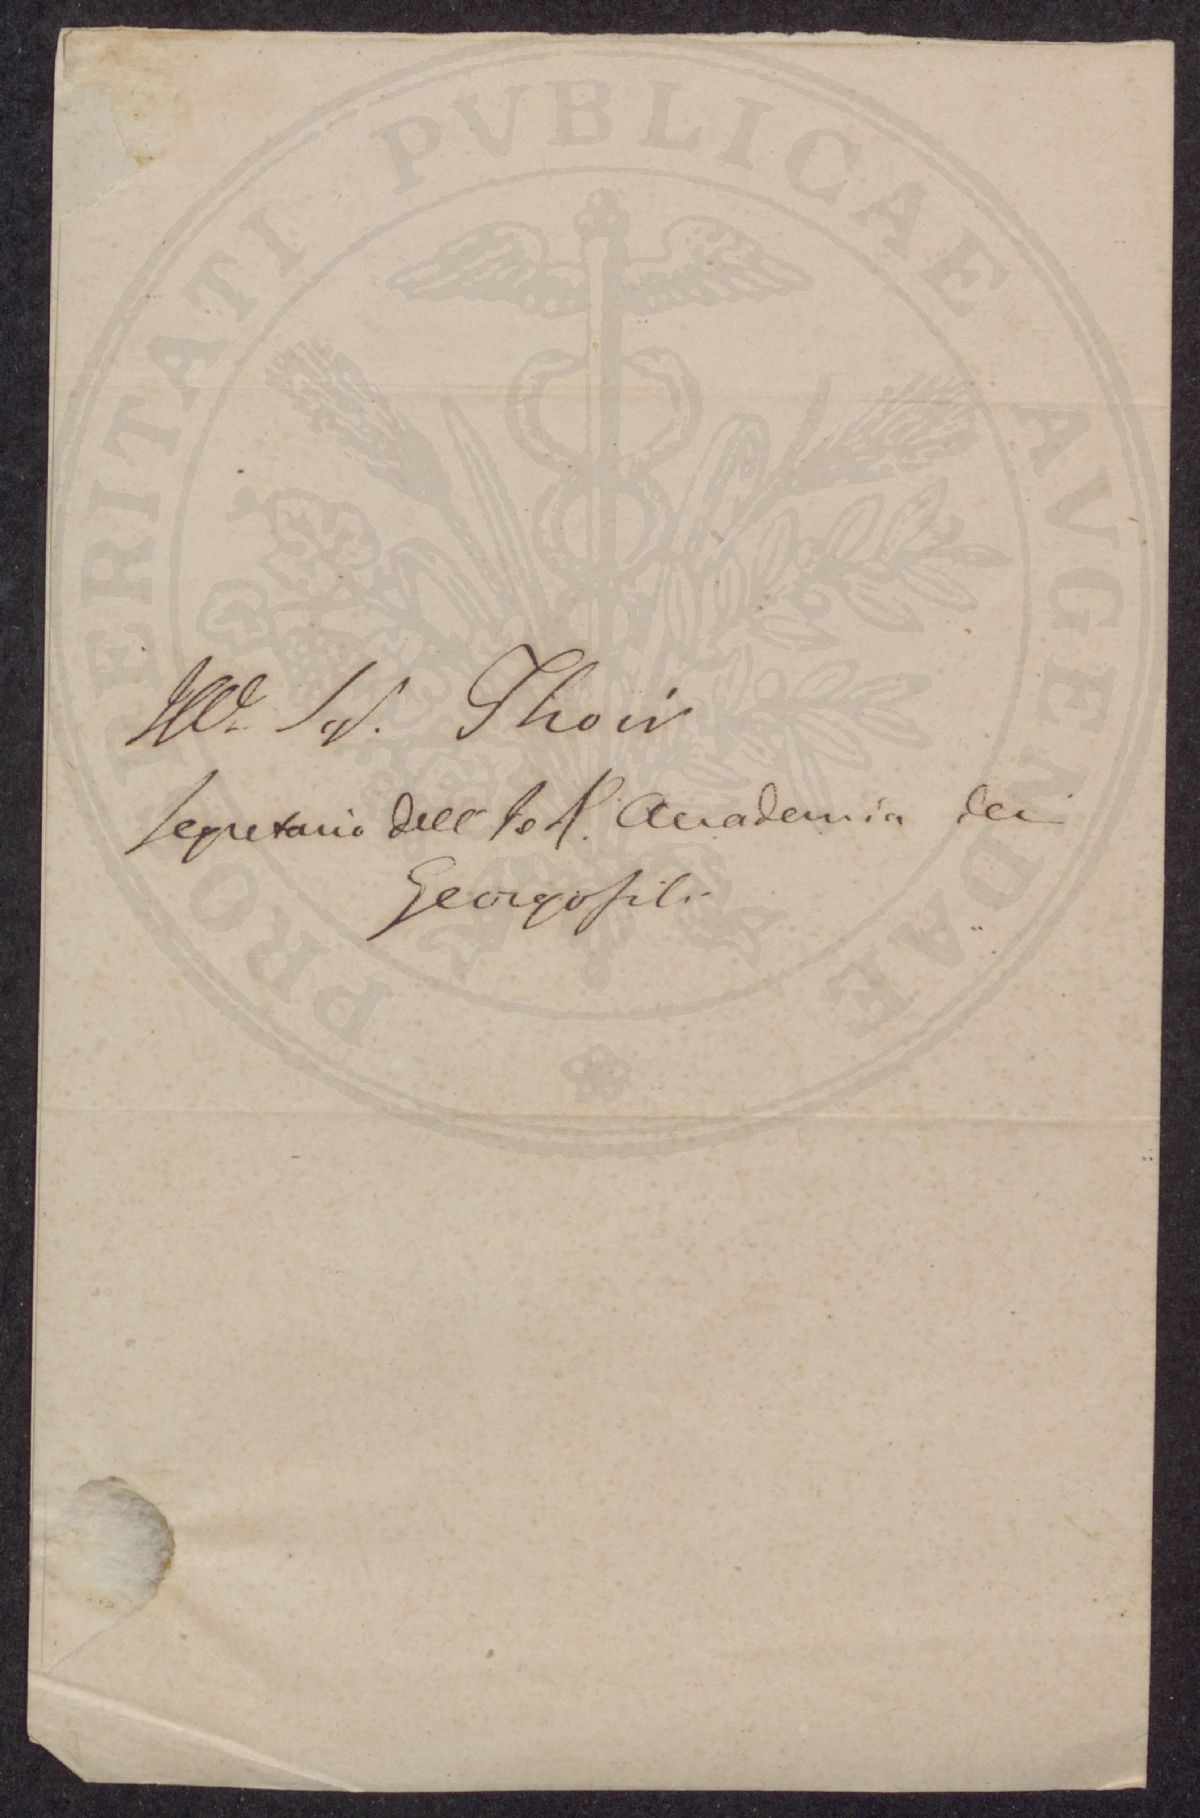 PROSPERITATI PVBLICAE AVGENDAE
Ill. Sig. Thoir
Segretario dell' I e R. Accademia dei
Georgofili